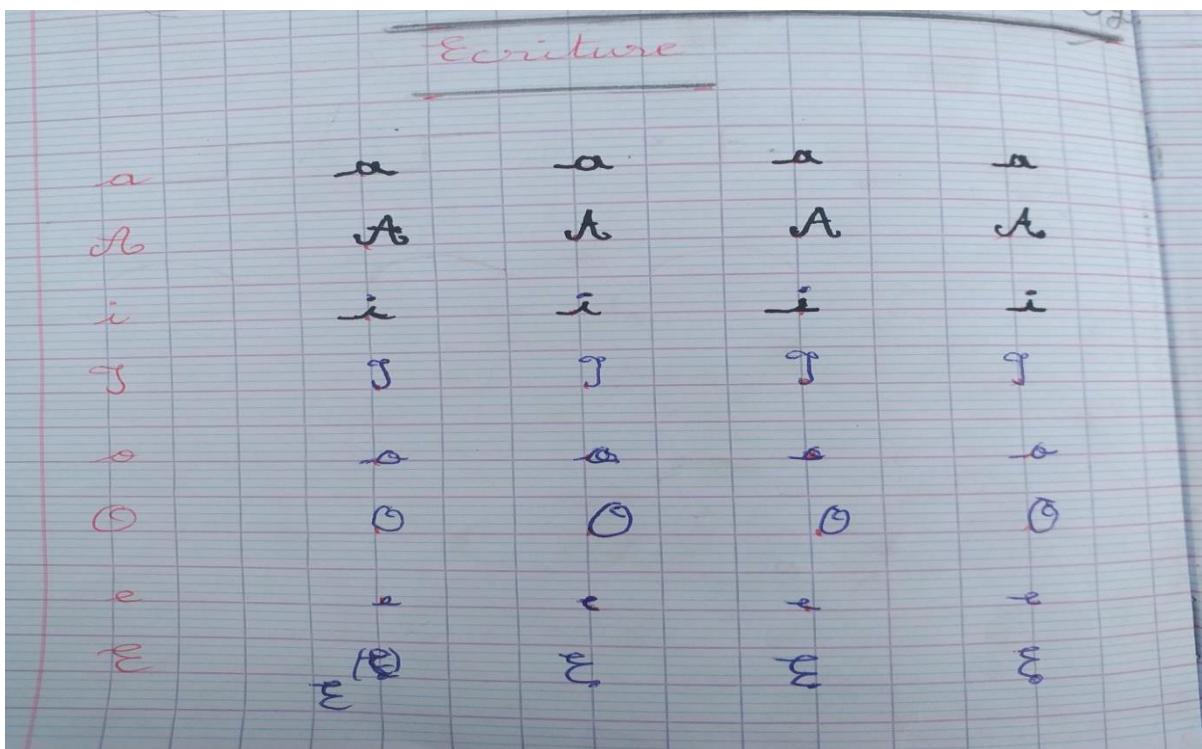 Ecriture
a a a a a
A A A A A
i i i i i
I I I I I
o o o o o
O O O O O
e e e e e
E (E) E E E
E